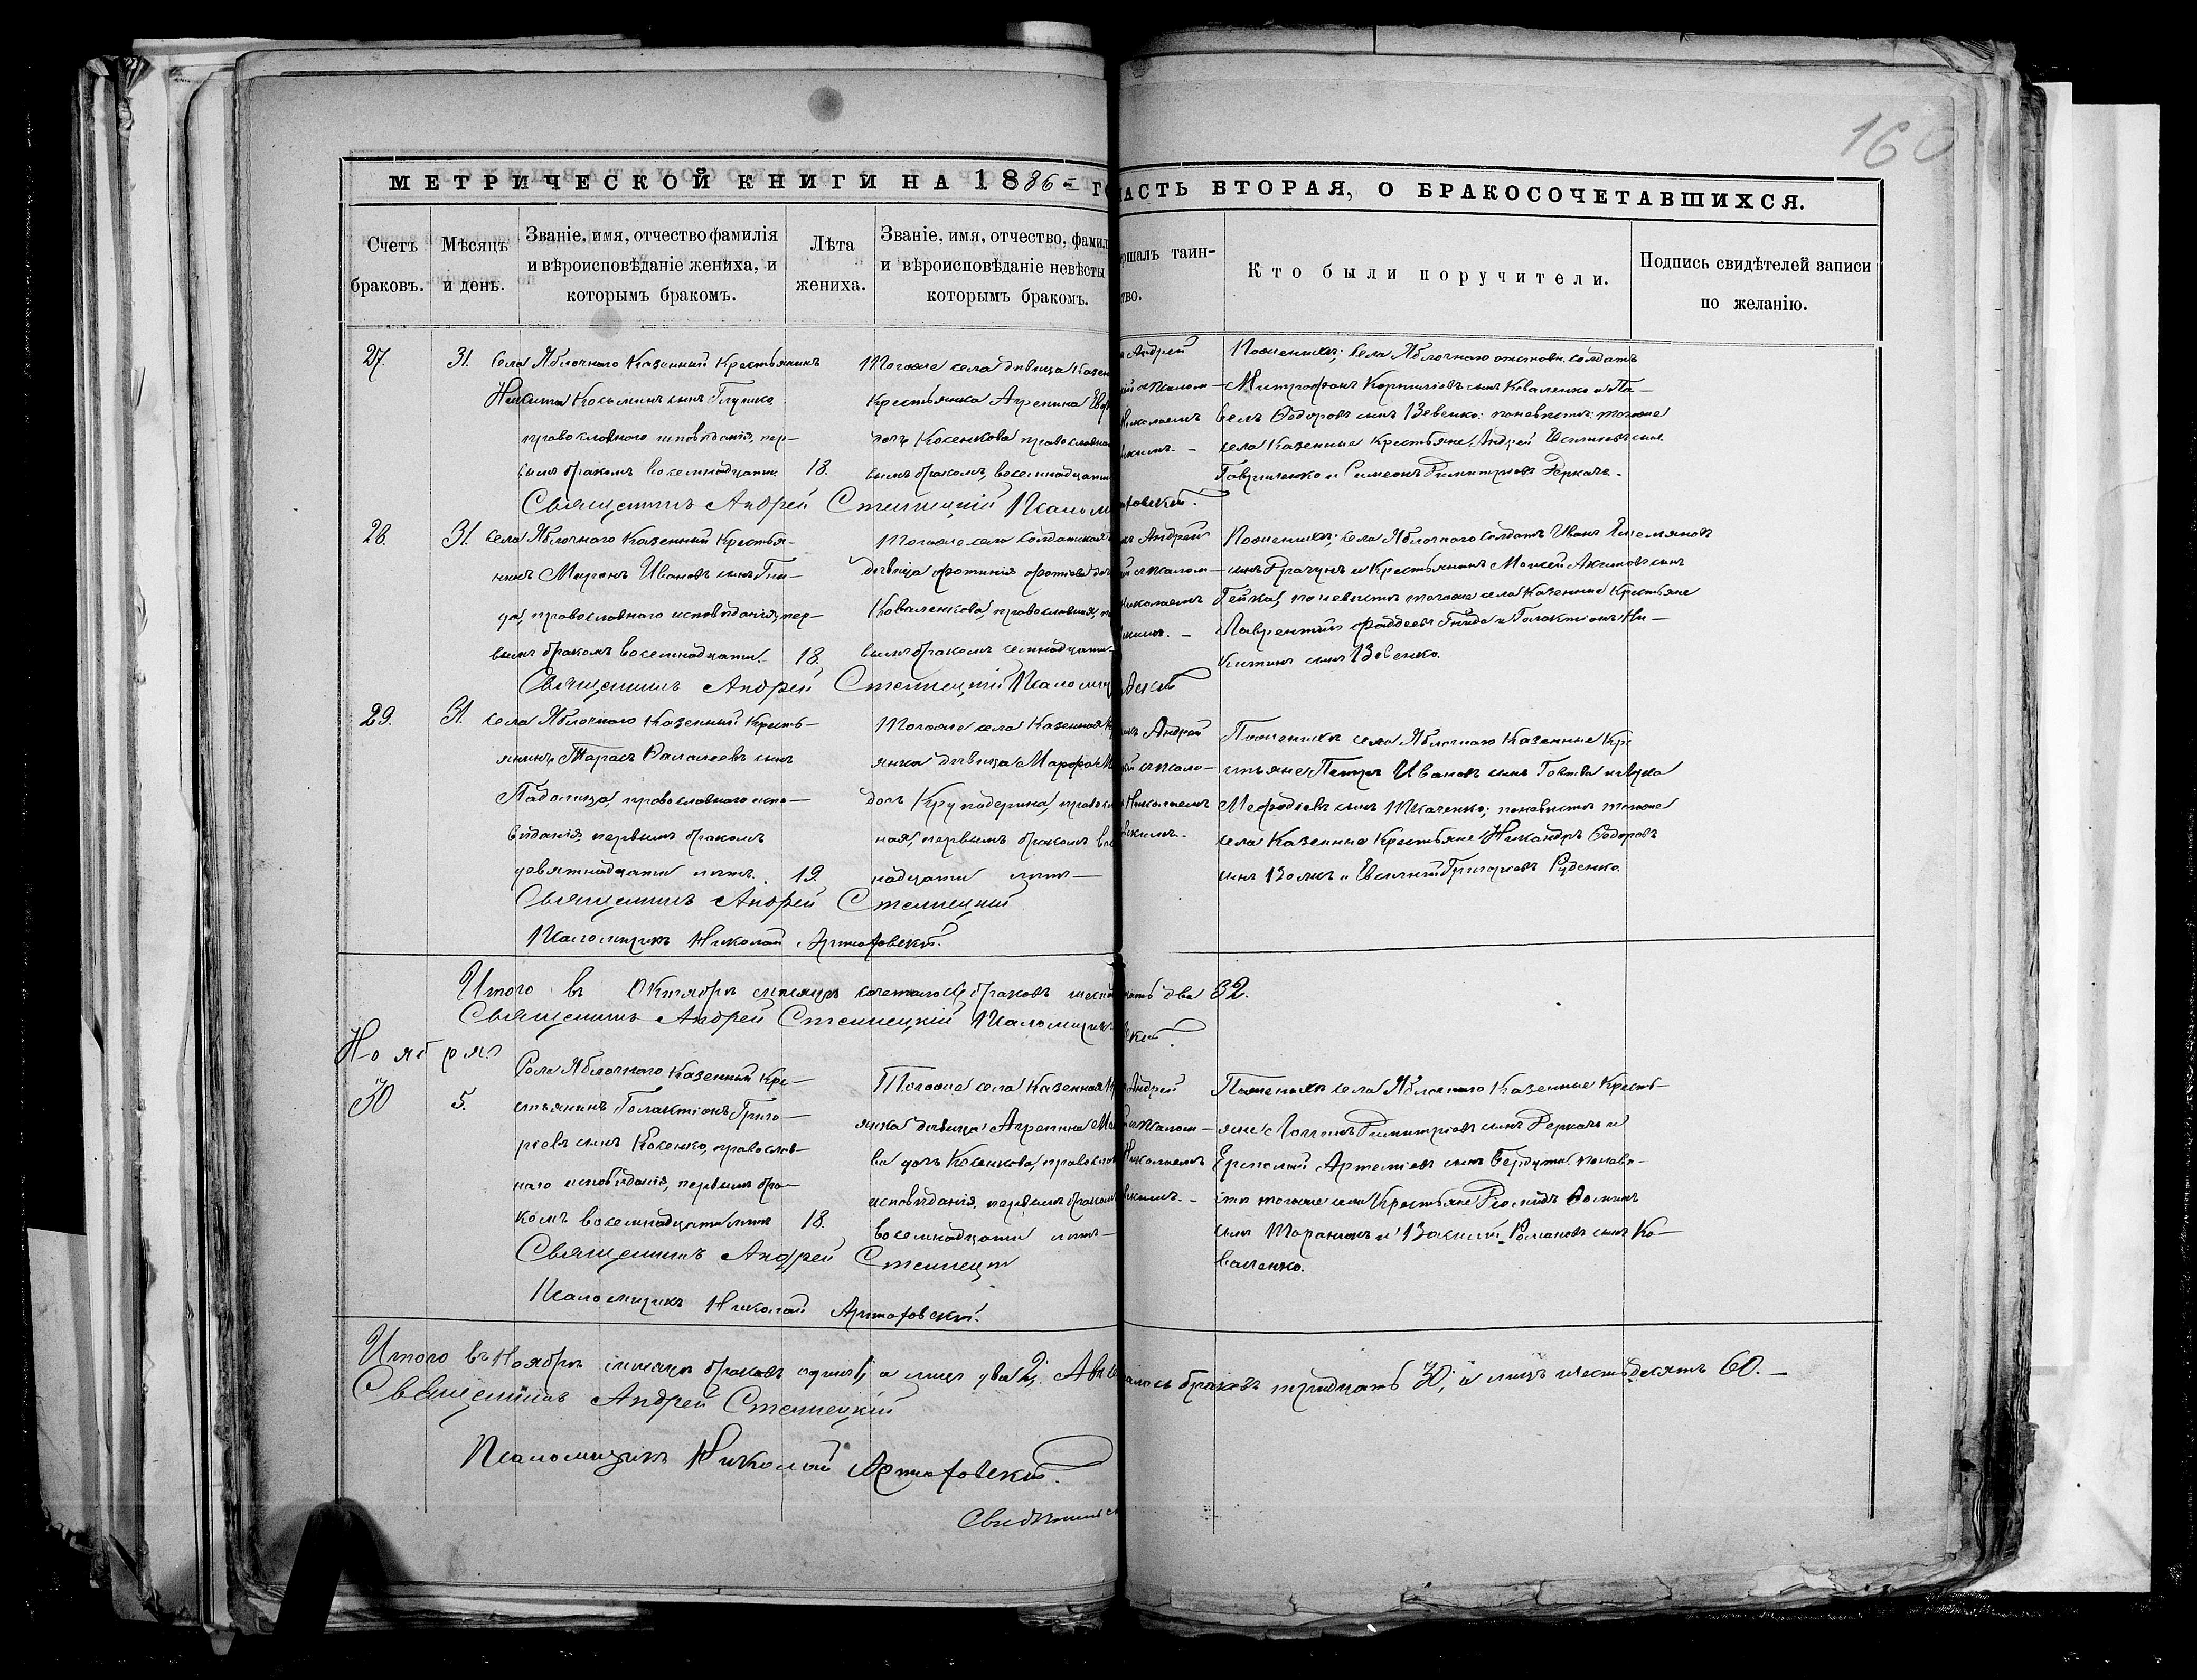 160
МЕТРИЧЕСКОЙ КНИГИ НА 1886 ГО
АСТЬ ВТОРАЯ, О БРАКОСОЧЕТАВШИХСЯ.
Счетъ браковъ.
Мѣсяцъ и день.
Званіе, имя, отчество фамилія
и вѣроисповѣданіе жениха, и
которымъ бракомъ.
Лѣта
жениха.
Званіе, имя, отчество, фамил
и вѣроисповѣданіе невѣсты
которымъ бракомъ.
ршалъ таин-
тво.
Кто были поручители.
Подпись свидѣтелей записи
по желанію.
27.
31.
села Яблочнаго Казенный Крестьянинъ
Никита Косьминъ сынъ Глушко
православнаго исповѣданія, пер-
вымъ бракомъ восемнадцати
18.
Тогоже села дѣвица Казен
Крестьянка Агрепина
Косенкова православна
вымъ бракомъ, восемнадцати
Андрей
Николаемъ
Поженихѣ; села Яблочнаго солдатъ
Митрофанъ Корниліевъ сынъ Коваленко и Па-
велъ Ѳедоровъ сынъ Зевенко; поневѣстѣ: тогоже
села Казенные Крестьяне Андрей сынъ
Гавриленко и Симеонъ Димитріевъ Деркачъ.
Священникъ Андрей Стеллецкій Псалом
28.
31.
села Яблочнаго Казенный Крестья-
нинъ Миронъ Ивановъ сынъ Гни-
да, православнаго исповѣданія, пер-
вымъ бракомъ восемнадцати.
18.
Тогоже села Солдатская
дѣвица Фотинія Фотіева доч
Коваленкова, православная, п
вымъ бракомъ семнадцати
Андрей
Николаемъ
Поженихѣ; села Яблочнаго солдатъ Иванъ Емельяновъ
сынъ и Крестьянинъ Моисей Акимовъ сынъ
Гейка, поневѣстѣ тогоже села Казенные Крестьяне
Лаврентій Фаддеевъ Гнида и Галактіонъ Ни-
китинъ сынъ Зевенко.
Священникъ Андрей Стеллецкій Псаломщ
29.
31.
села Яблочнаго Казенный Кресть-
янинъ Тарасъ сынъ
православнаго испо-
вѣданія, первымъ бракомъ
девятнадцати лѣтъ.
19.
Тогоже села Казенная К
янка дѣвица Марфа М
доч Круподерина, правосл
ная, первымъ бракомъ вос
надцати лѣтъ
Андрей
Николаемъ
Поженихѣ села Яблочнаго Казенные Кре
стьяне Петръ Ивановъ сынъ и Лука
Мефодіевъ сынъ Ткаченко; поневѣстѣ тогоже
села Казенные Крестьяне Никандръ Ѳедоровъ
сынъ и Григорьевъ Руденко.
Священникъ Андрей Стеллецкій
Псаломщикъ Николай Артюховскій.
Итого въ Октябрѣ мѣсяцѣ сочеталось браковъ
два 32.
Священникъ Андрей Стеллецкій Псаломщикъ
Ноября
30
5.
Села Яблочнаго Казенный Кре-
стьянинъ Галактіонъ Григо-
ріевъ сынъ Косенко, православ-
наго исповѣданія, первымъ бра-
комъ восемнадцати лѣтъ
18.
Тогоже села Казенная К
янка дѣвица Агрепина
ва доч Косенкова, правосла
исповѣданія, первымъ бракомъ
восемнадцати лѣтъ
Андрей
Николаемъ
Поженихѣ села Яблочнаго Казенные Кресть-
яне Димитріевъ сынъ Деркачъ и
Ермолай Артеміевъ сынъ поневѣ-
стѣ тогоже села Крестьяне
сынъ и Василій Романовъ сынъ Ко-
валенко.
Священникъ Андрей Стеллецкій
Псаломщикъ Николай Артюховскій.
Итого въ Ноябрѣ мѣсяцѣ браковъ одинъ 1, а лицъ два 2,
алось браковъ тридцать 30, а лицъ шестьдесятъ 60.
Священникъ Андрей Стеллецкій
Псаломщикъ Николай Артюховскій.